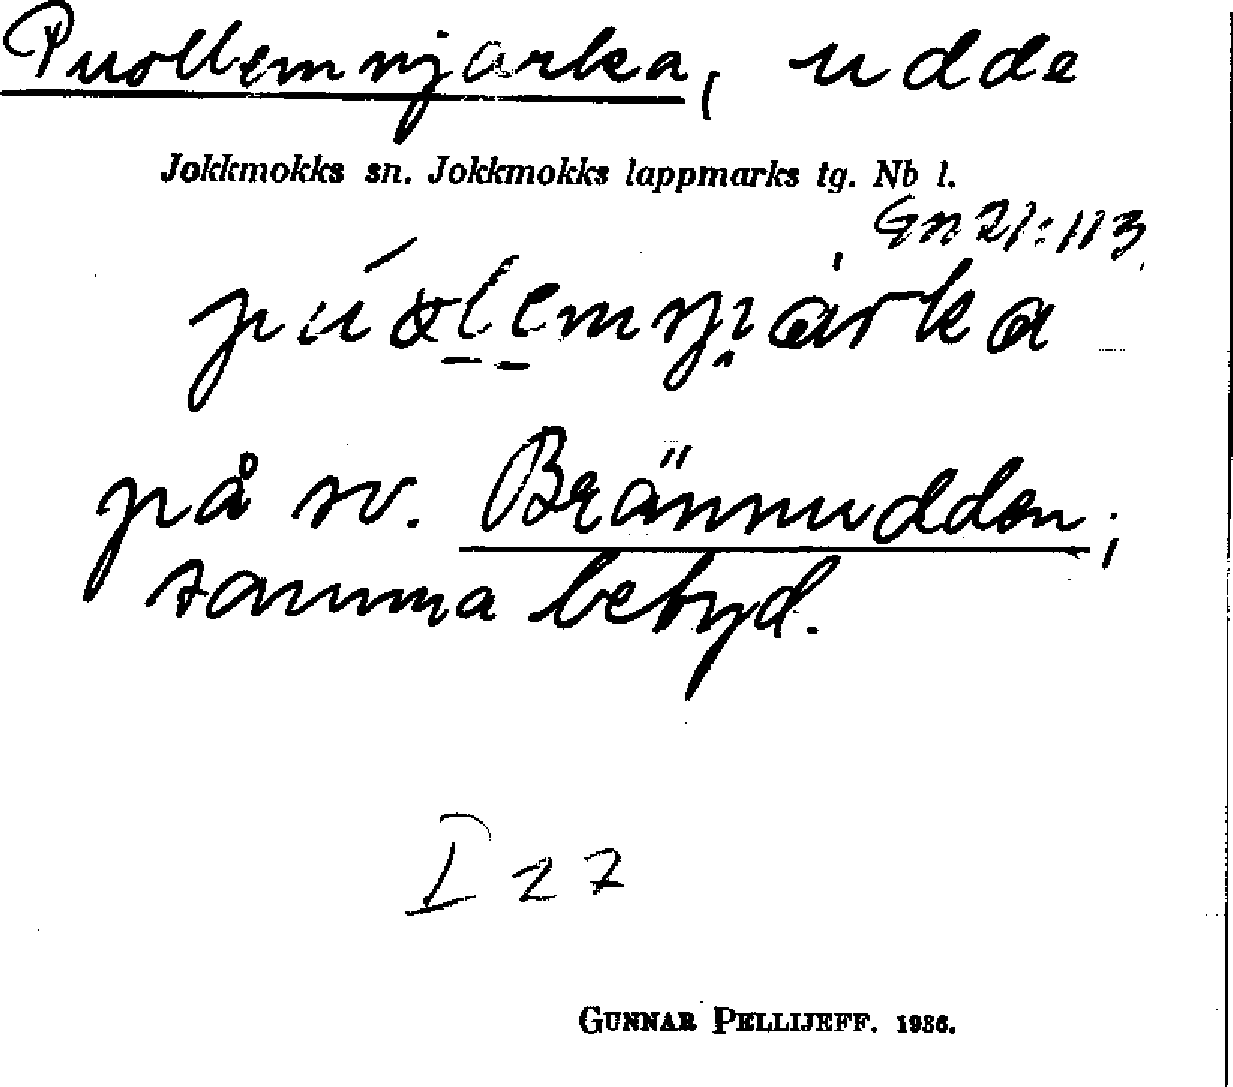 Puollemnjarka, udde
Jokkmokks sn. Jokkmokks lappmarks tg. Nb l.
Gn 21:113
på sv. Brännudden;
samma betyd.
I 27
GUNNAR PELLIJEFF. 1936.